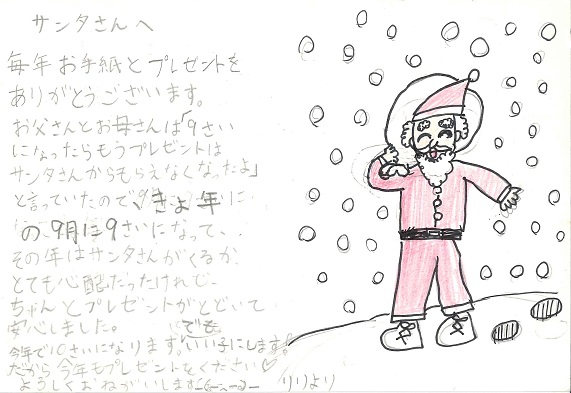 サンタさんへ
毎年お手紙とプレゼントを
ありがとうございます。
お父さんとお母さんは「9さい
になったらもうプレゼントは
サンタさんからもらえなくなったよ」
と言っていたので、きょ年
の9月に9さいになって、
その年はサンタさんがくるか
とても心配だったけれど、
ちゃんとプレゼントがとどいて
安心しました。でも
今年で10さいになります。いい子にします。
だから今年もプレゼントをください♡
よろしくおねがいします
りりより